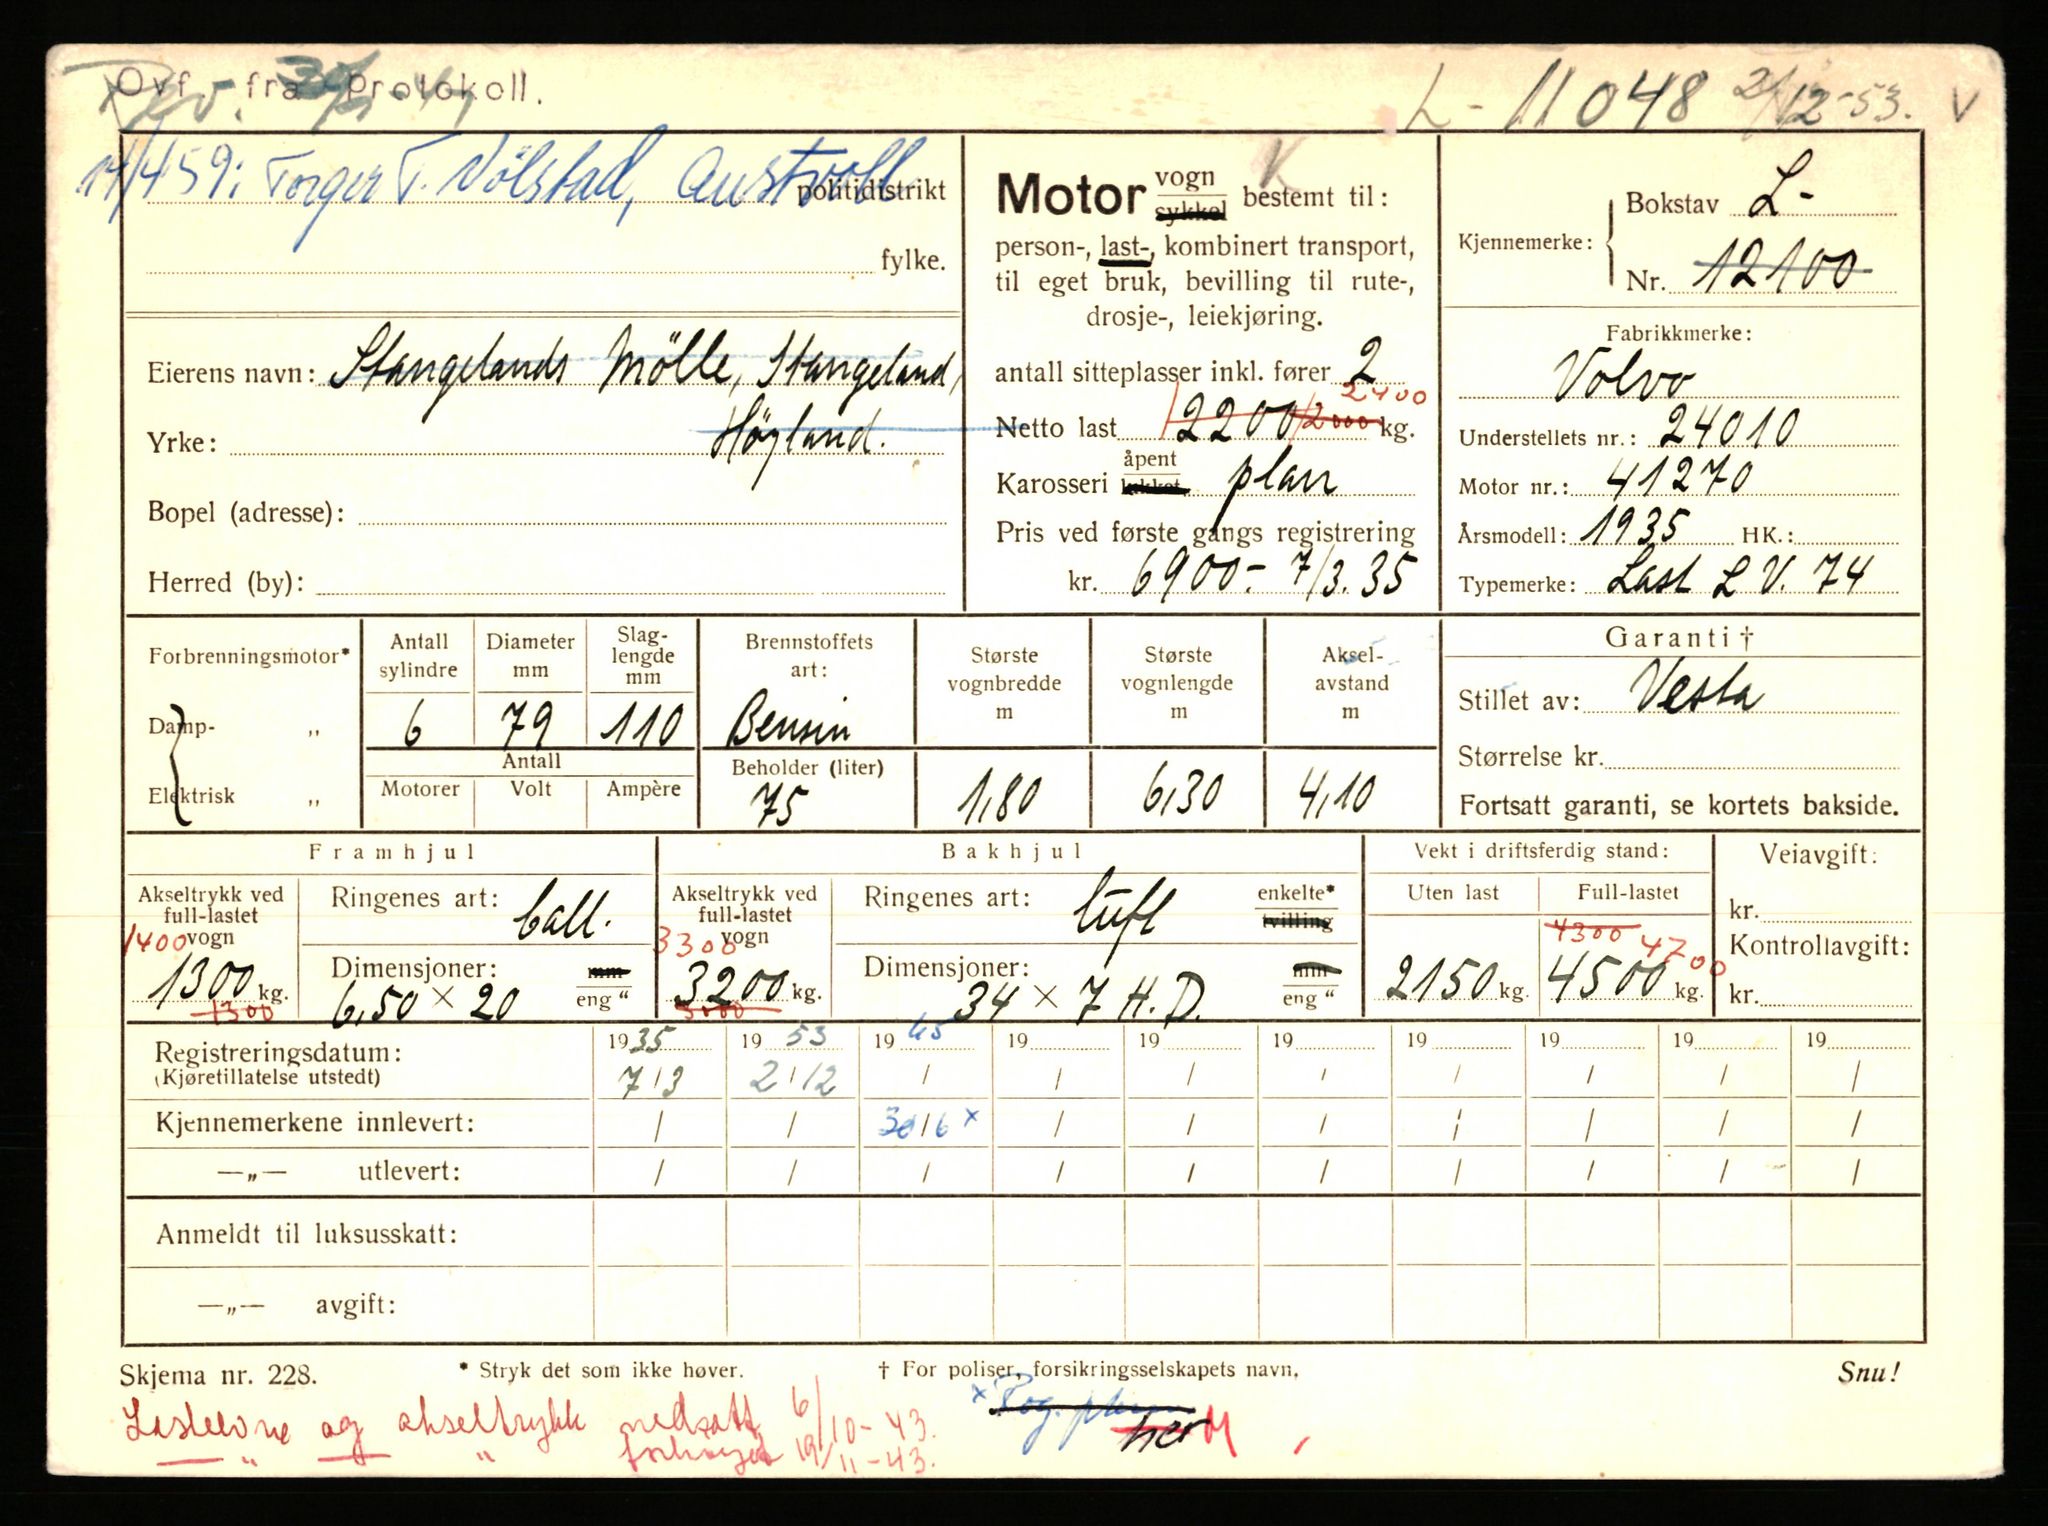 Ovf. fra protokoll.
L - 11048 2/12-53. V
14/459: Torger T. Nölstad, Austvoll
politidistrikt
fylke.
Eierens navn: Stangelands Mölle, Stangeland,
Yrke: Höyland.
Bopel (adresse):
Herred (by):
Motor vogn sykkel bestemt til:
person-, last-, kombinert transport,
til eget bruk, bevilling til rute-,
drosje-, leiekjøring.
antall sitteplasser inkl. fører 2
2400
Netto last 2200 2000 kg.
Karosseri åpent lukket plan
Pris ved første gangs registrering
kr. 6900.- 7/3.35
Kjennemerke: Bokstav L-
Nr. 12100
Fabrikkmerke:
Volvo
Understellets nr.: 24010
Motor nr.: 41270
Årsmodell: 1935 HK.:
Typemerke: Last LV. 74
Forbrenningsmotor*
Damp- „
Elektrisk „
Antall sylindre 6
Diameter mm 79
Slaglengde mm 110
Antall
Motorer Volt Ampère
Brennstoffets art: Bensin
Beholder (liter) 75
Største vognbredde m 1,80
Største vognlengde m 6,30
Aksel-avstand m 4,10
Garanti †
Stillet av: Vesta
Størrelse kr.
Fortsatt garanti, se kortets bakside.
Framhjul
Akseltrykk ved full-lastet vogn
1400
1300 kg.
1300
Ringenes art: ball.
Dimensjoner: mm eng "
6,50 × 20
Bakhjul
Akseltrykk ved full-lastet vogn
3300
3200 kg.
3000
Ringenes art: luft enkelte* tvilling
Dimensjoner: mm eng "
34 × 7 H.D.
Vekt i driftsferdig stand:
Uten last Full-lastet
4300 4700
2150 kg. 4500 kg.
Veiavgift:
kr.
Kontrollavgift:
kr.
1935 1953 1965 19 19 19 19 19 19 19
Registreringsdatum:
(Kjøretillatelse utstedt) 7/3 2/12 / / / / / / / /
Kjennemerkene innlevert: / / 30/6 x / / / / / / /
—„— utlevert: / / / / / / / / / /
Anmeldt til luksusskatt:
—„— avgift:
Skjema nr. 228. * Stryk det som ikke høver. † For poliser, forsikringsselskapets navn. Snu!
Lasteevne og akseltrykk nedsatt 6/10-43.
—„— „ forhøyet 19/11-43.